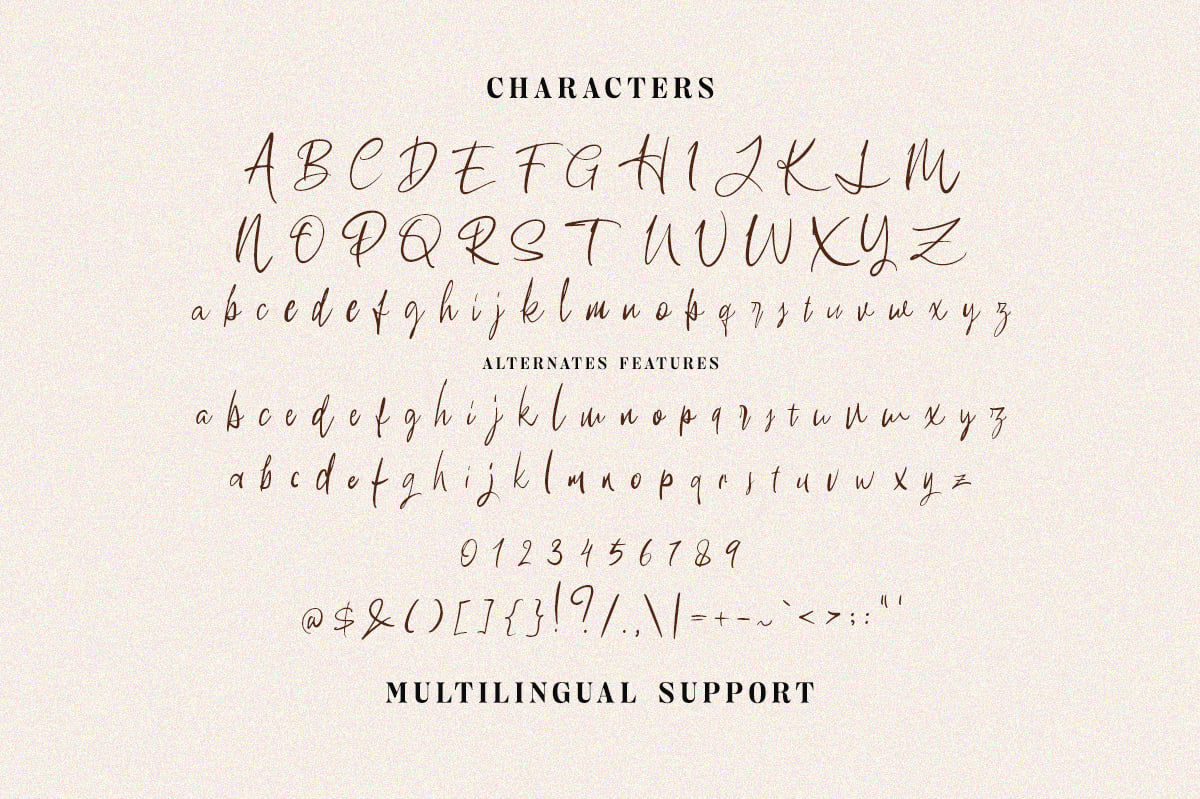 CHARACTERS
A B C D E F G H I J K L M
N O P Q R S T U V W X Y Z
a b c e d e f g h i j k l m n o p q r s t u v w x y z
ALTERNATES FEATURES
a b c e d e f g h i j k l m n o p q r s t u v w x y z
a b c d e f g h i j k l m n o p q r s t u v w x y z
0 1 2 3 4 5 6 7 8 9
@ $ & ( ) [ ] { } ! ? / . , \ | = + - ~ ` < > ; : " '
MULTILINGUAL SUPPORT